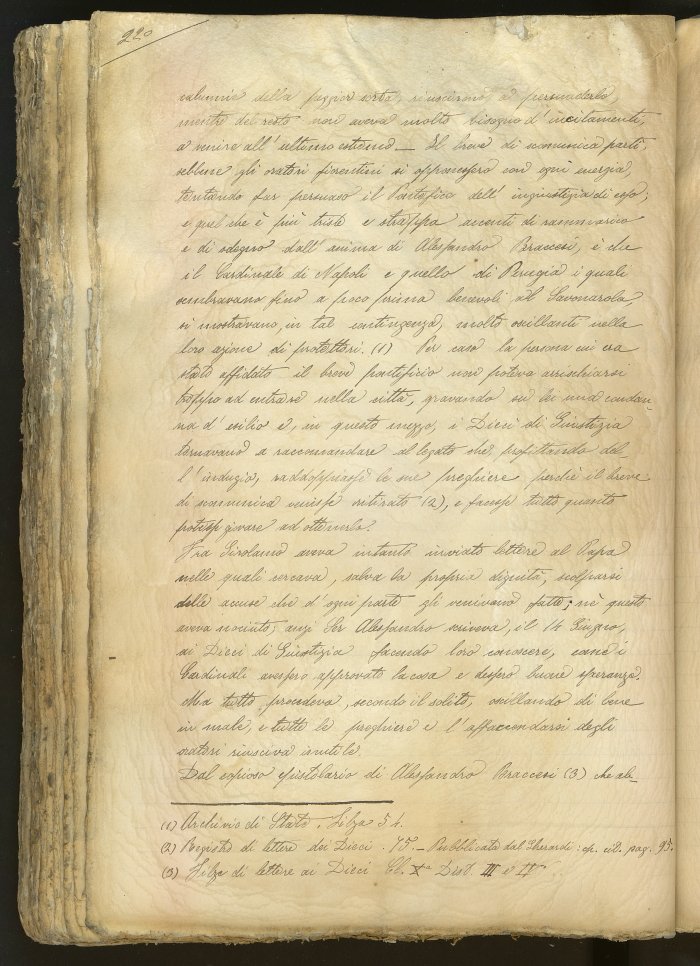 220
calunnie della peggior sorta, riuscirono a persuaderlo,
mentre del resto non aveva molto bisogno d'incitamenti,
a venire all'ultimo estremo — Il breve di scomunica partì,
sebbene gli oratori fiorentini si opponessero con ogni energia,
tentando far persuaso il Pontefice dell'ingiustizia di esso;
e quel che è più triste e strappa accenti di rammarico
e di sdegno dall'anima di Alessandro Braccesi, è che
il Cardinale di Napoli e quello di Perugia i quali
sembravano fino a poco prima benevoli al Savonarola,
si mostravano, in tal contingenza, molto oscillanti nella
loro azione di protettori. (1) Per caso la persona cui era
stato affidato il breve pontificio non poteva arrischiarsi
troppo ad entrare nella città, gravando su lui una condan-
na d'esilio e, in questo mezzo, i Dieci di Giustizia
tornavano a raccomandare al legato che profittando del-
l'indugio, raddoppiasse le sue preghiere perchè il breve
di scomunica venisse ritirato (2), e facesse tutto quanto
potesse giovare ad ottenerlo.
Fra Girolamo aveva intanto inviato lettere al Papa
nelle quali cercava, salva la propria dignità, scolparsi
delle accuse che d'ogni parte gli venivano fatte; nè questo
aveva nociuto; anzi Ser Alessandro scriveva, il 14 Giugno,
ai Dieci di Giustizia facendo loro conoscere, come i
Cardinali avessero approvato la cosa e dessero buone speranze.
Ma tutto procedeva, secondo il solito, oscillando di bene
in male, e tutte le preghiere e l'affaccendarsi degli
oratori riusciva inutile.
Dal copioso epistolario di Alessandro Braccesi (3) che ab-
(1) Archivio di Stato. Filza 54.
(2) Registro di lettere dei Dieci. 75. — Pubblicato dal Gherardi: op. cit. pag. 95.
(3) Filze di lettere ai Dieci Cl. Xª Dist. III e IV